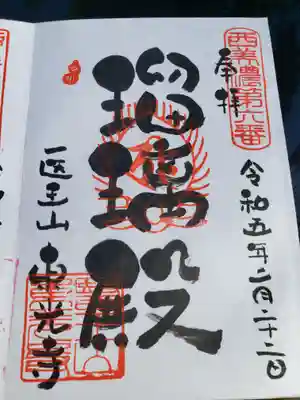 西美濃第六番
奉拝
令和五年二月二十二日
瑠璃殿
医王山 東光寺